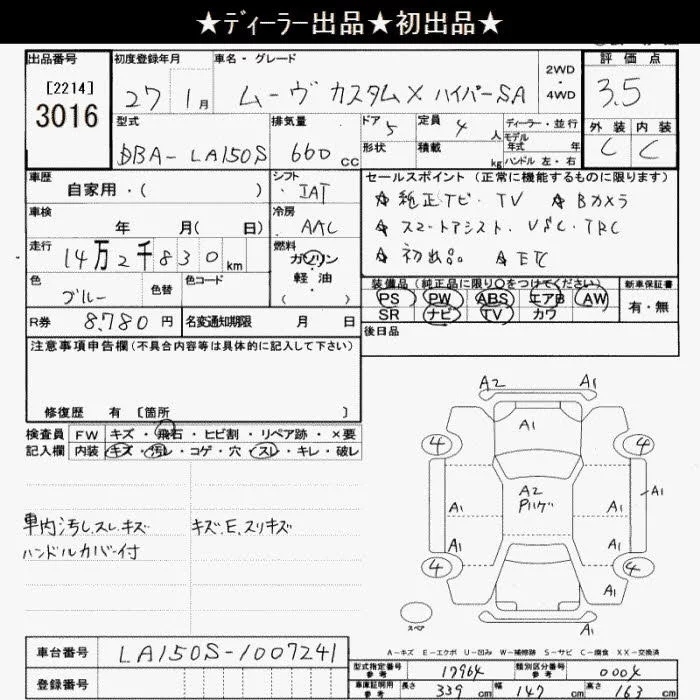 ★ディーラー出品★初出品★
出品番号 [2214] 3016
初度登録年月 27 1月
車名・グレード ムーヴ カスタムX ハイパーSA
2WD・4WD
評価点 3.5
外装 C 内装 C
型式 DBA-LA150S
排気量 660 cc
ドア 5 形状
定員 4人 積載 kg
ディーラー・並行
モデル年式 年
ハンドル 左・右
車歴 自家用・( )
シフト IAT
車検 年 月( 日)
冷房 AAC
走行 14万2千830 km
燃料 ガソリン・軽油・( )
色 ブルー 色替 色コード
R券 8,780 円 名変通知期限 月 日
セールスポイント (正常に機能するものに限ります)
☆ 純正ナビ・TV ☆ Bカメラ
☆ スマートアシスト・VSC・TRC
☆ 初出品 ☆ ETC
装備品(純正品に限り○をつけてください) 新車保証書
PS PW ABS エアB AW 有・無
SR ナビ TV カワ
後日品
注意事項申告欄(不具合内容等は具体的に記入して下さい)
修復歴 有 [箇所 ]
検査員 FW キズ・飛石・ヒビ割・リペア跡・×要
記入欄 内装 キズ・汚レ・コゲ・穴・スレ・キレ・破レ
車内汚し.スレ.キズ キズ.E.スリキズ
ハンドルカバー付
A2 A1
A1
4 4
A2
Pハゲ
A1 A1 A1
A1 A1
4 4
A1
スペア
A-キズ E-エクボ U-凹み W-補修跡 S-サビ C-腐食 XX-交換済
車台番号 LA150S-1007241
登録番号
型式指定番号 参考 17964 類別区分番号 参考 0004
車庫証明用 参考 長さ 339 cm 幅 147 cm 高さ 163 cm